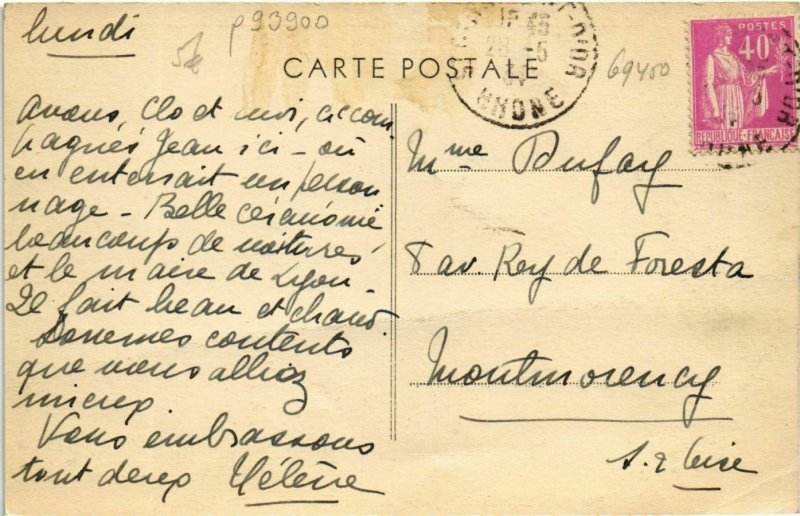 lundi
p93900
CARTE POSTALE
69450
POSTES
40c
RÉPUBLIQUE FRANÇAISE
RHONE
Avons, Clo et moi, accom
pagnés Jean ici - où
on enterrait un person
nage - Belle cérémonie
beaucoup de voitures
et le maire de Lyon -
Il fait beau et chaud.
Sommes contents
que vous alliez
mieux
Vous embrassons
tout deux Hélène
Mme Dufay
8 av. Rey de Foresta
Montmorency
S. & Oise